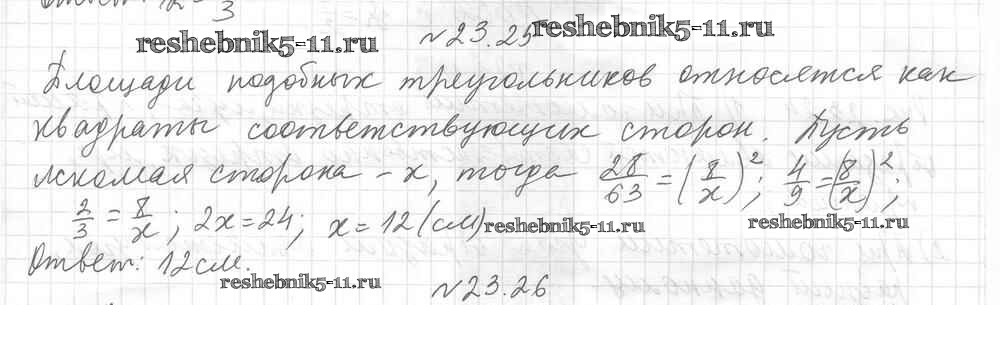 Ответ: 12 = 3
reshebnik5-11.ru
№23.25 reshebnik5-11.ru
Площади подобных треугольников относятся как
квадраты соответствующих сторон. Пусть
искомая сторона - x, тогда 28/63 = (8/x)²; 4/9 = (8/x)²;
2/3 = 8/x; 2x = 24; x = 12 (см) reshebnik5-11.ru reshebnik5-11.ru
Ответ: 12 см.
reshebnik5-11.ru
№23.26